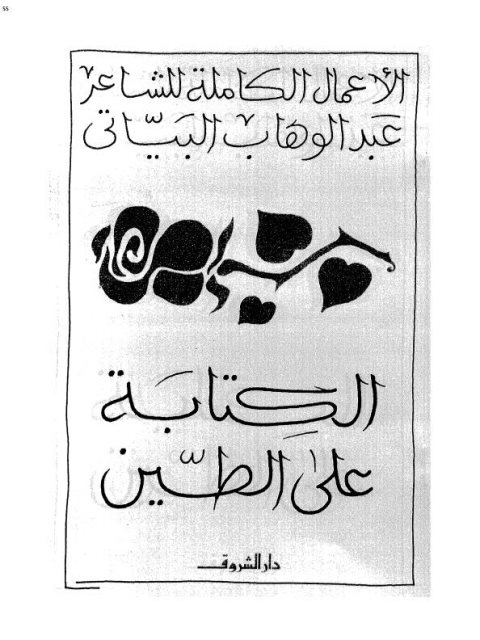 ss
الأعمال الكاملة للشاعر
عَبد الوهاب البَيّاتى
الكِتابَة
على الطّين
دار الشروق